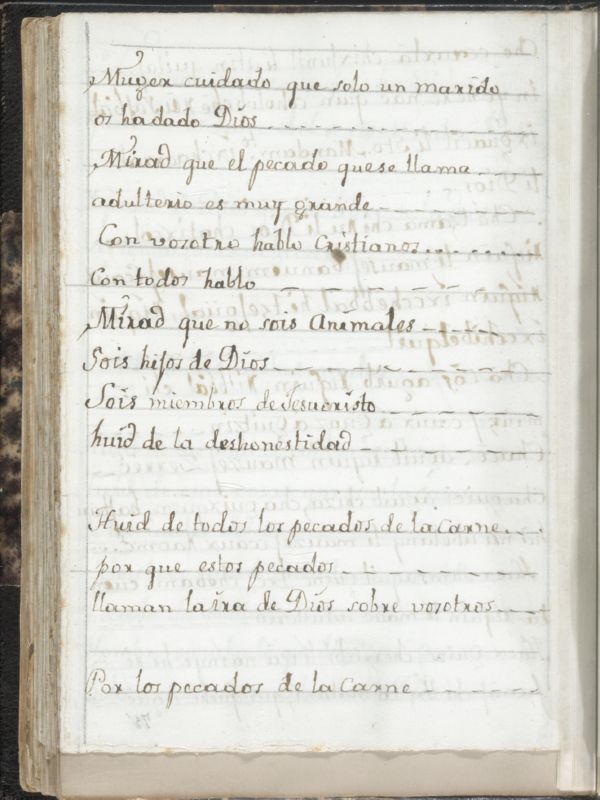 Muger cuidado que solo un marido
os ha dado Dios
Mirad que el pecado que se llama
adulterio es muy grande
Con vosotro hablo Cristianos
Con todos hablo
Mirad que no sois Animales
Sois hijos de Dios
Sois miembros de Jesucristo
huid de la deshonestidad
Huid de todos los pecados de la Carne
por que estos pecados
llaman la ira de Dios sobre vosotros
Por los pecados de la Carne